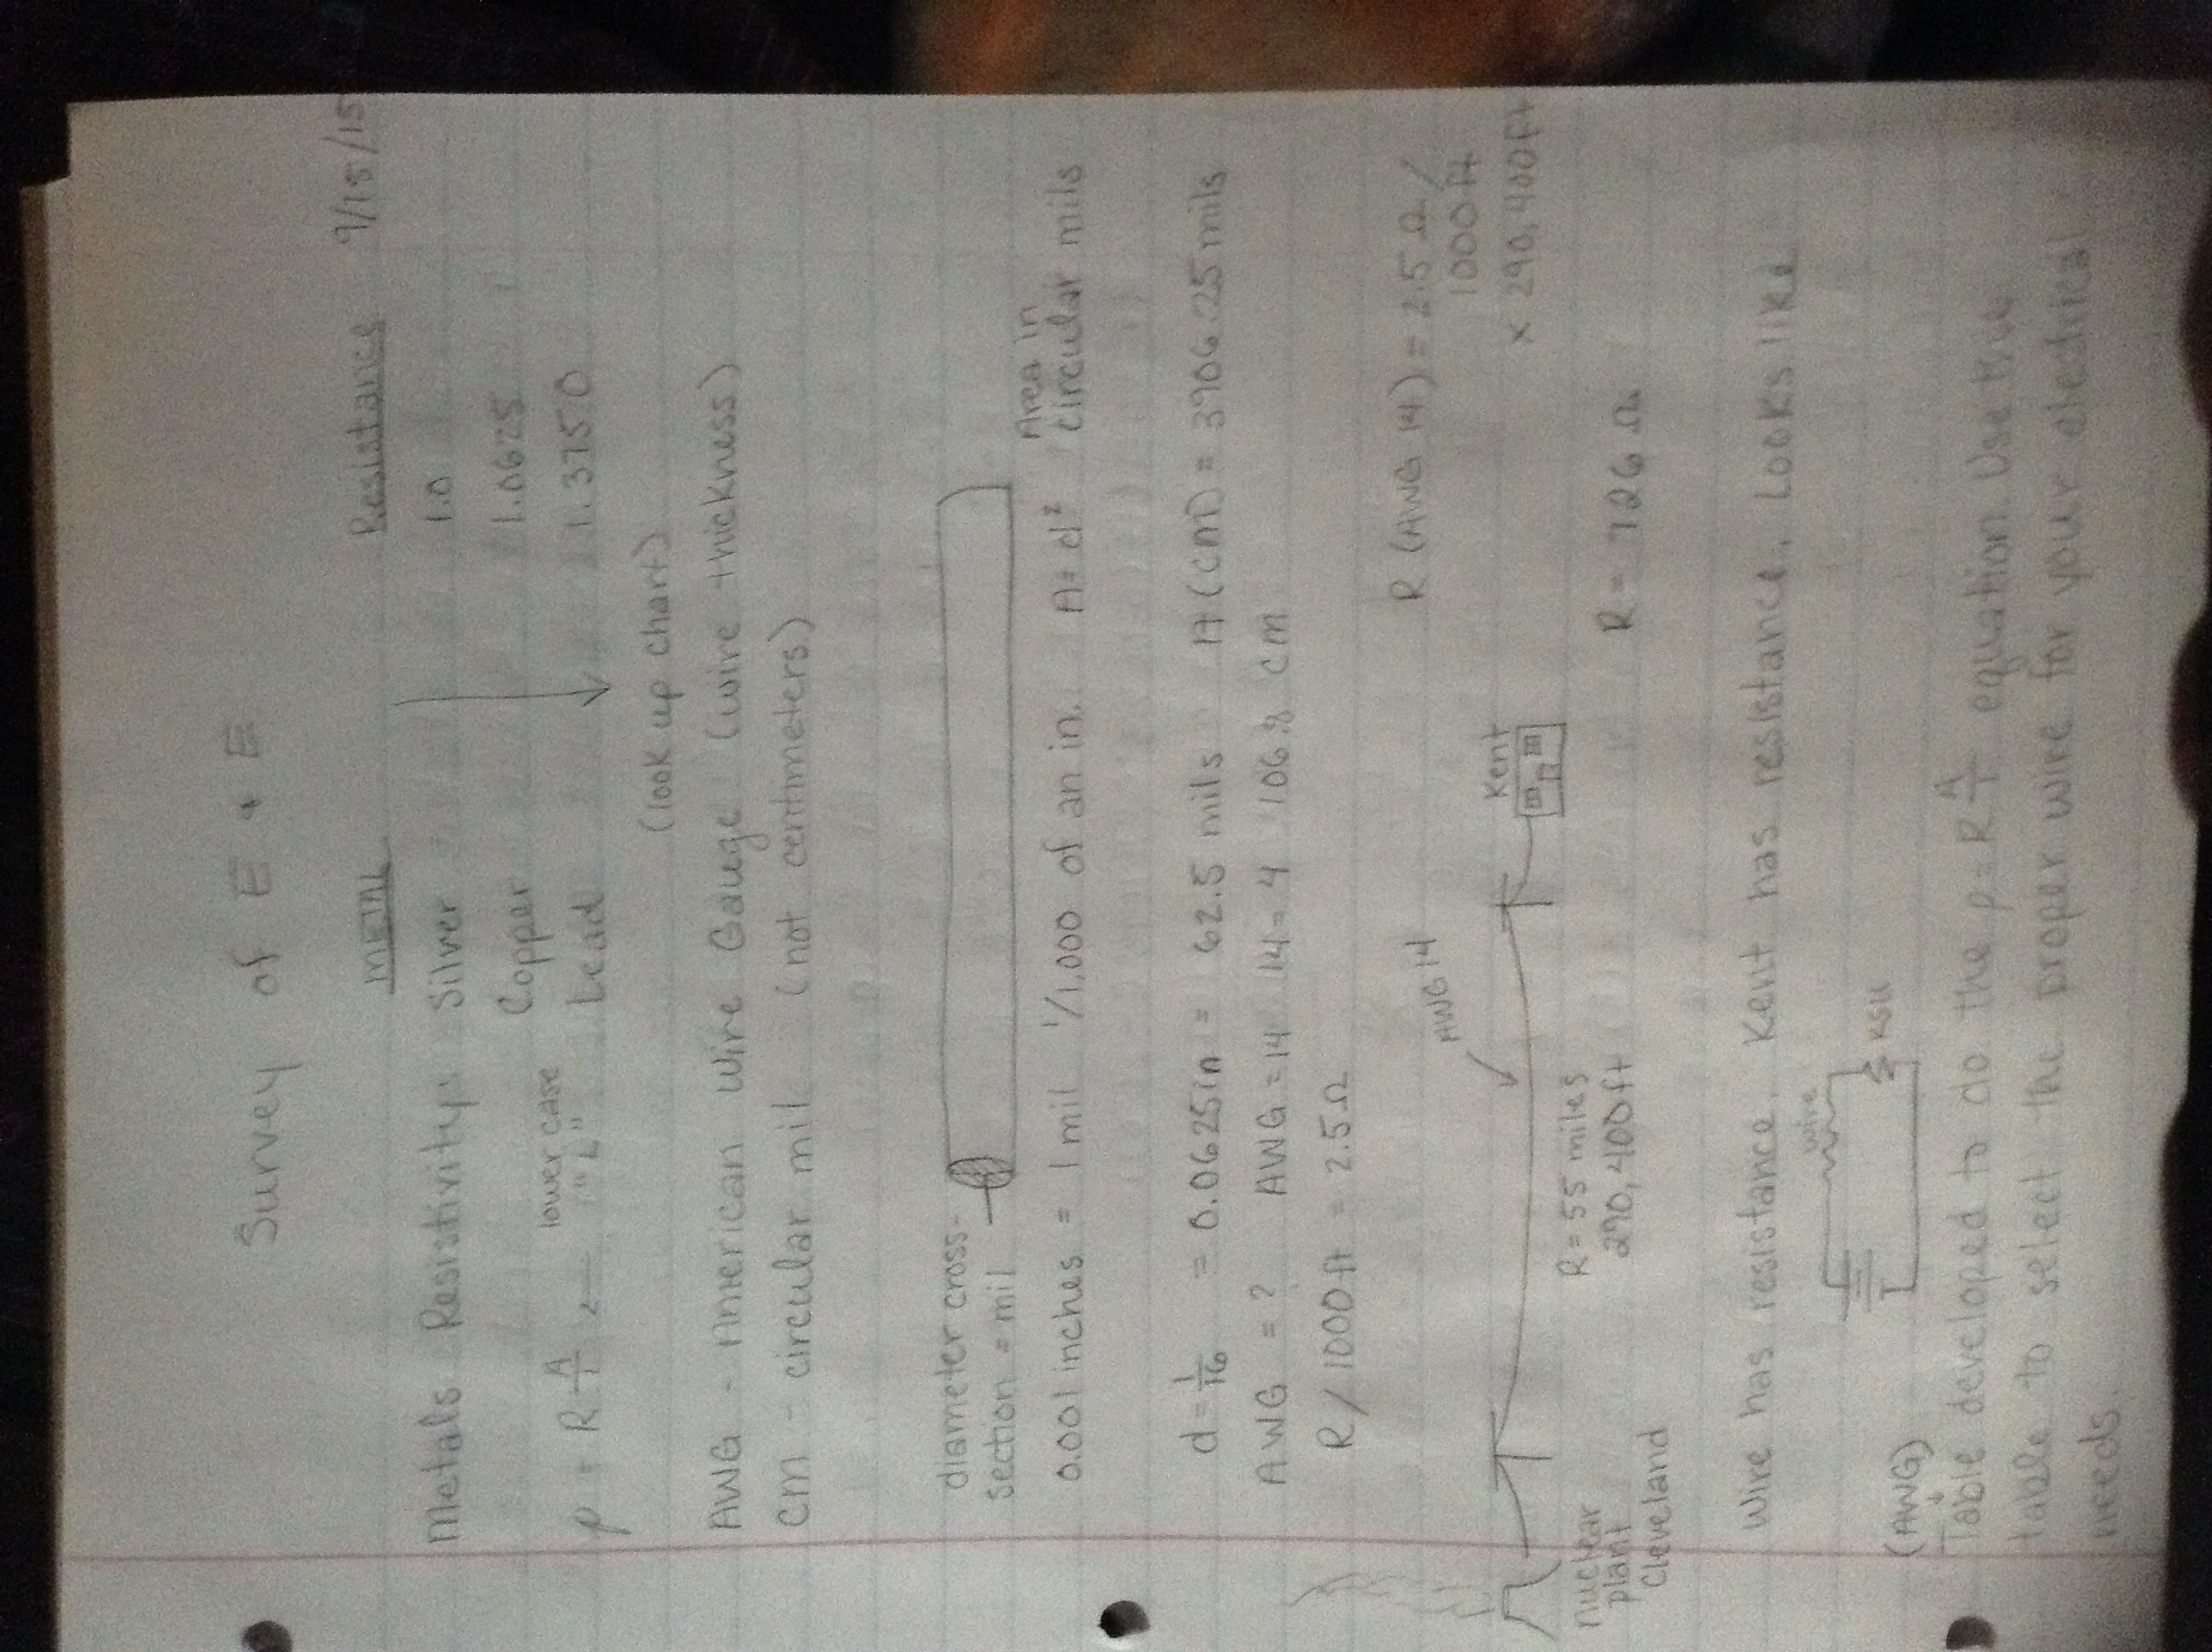 Survey of E & E
METAL Resistance 9/15/15
Metals Resistivity: Silver 1.0
Copper 1.0625
lower case
ρ = R A/l ← "L" Lead 1.3750
(look up chart)
AWG - American Wire Gauge (wire thickness)
CM - circular mil (not centimeters)
diameter cross-
section = mil
Area in
0.001 inches = 1 mil 1/1,000 of an in. A = d² circular mils
d = 1/16 = 0.0625in = 62.5 mils A (cm) = 3906.25 mils
AWG = ? AWG = 14 14 = 4 106.8 cm
R / 1000ft = 2.5 Ω
AWG 14
R (AWG 14) = 2.5 Ω /
1000 ft
x 290,400 ft
Kent
R = 55 miles
290,400 ft
R = 726 Ω
nuclear
plant
Cleveland
Wire has resistance. Kent has resistance. Looks like
wire
KSU
(AWG)
Table developed to do the ρ = R A/l equation. Use this
table to select the proper wire for your electrical
needs.